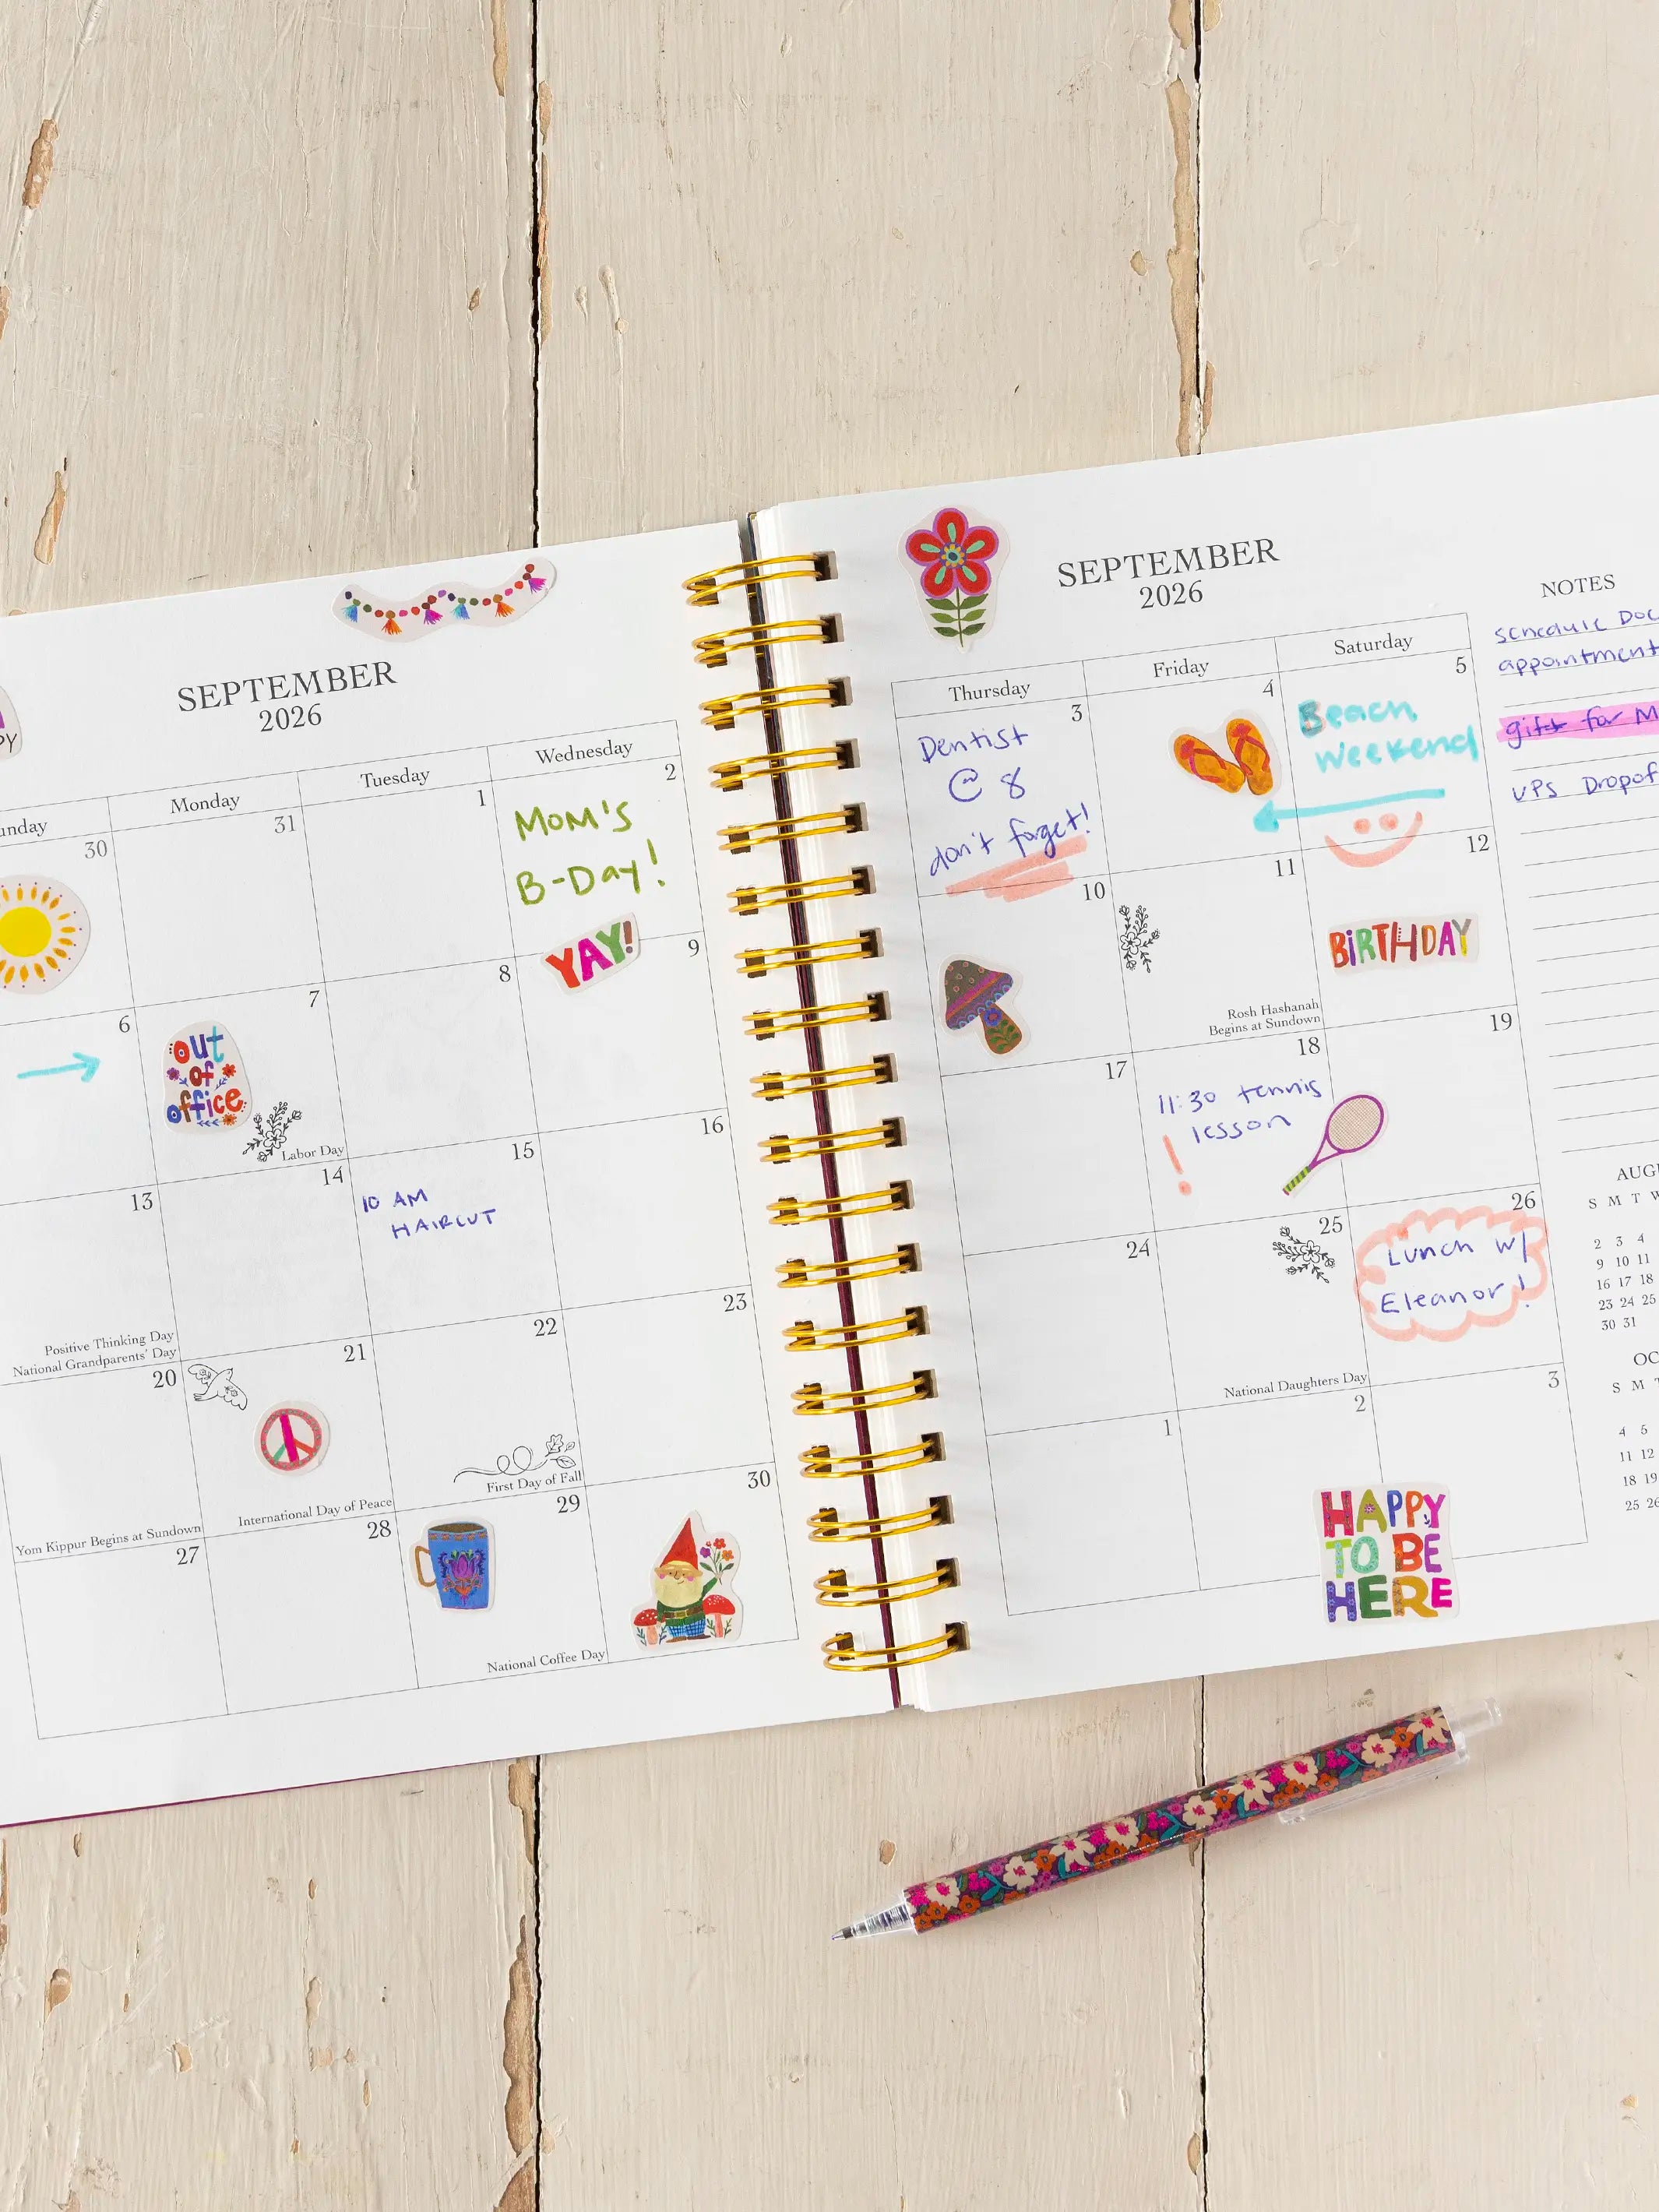 SEPTEMBER
2026
Monday
Tuesday
Wednesday
30
31
1
2
MOM'S
B-DAY!
YAY!
6
7
out
of
office
Labor Day
8
9
13
Positive Thinking Day
National Grandparents' Day
14
15
10 AM
HAIRCUT
16
20
Yom Kippur Begins at Sundown
21
International Day of Peace
22
First Day of Fall
23
27
28
29
National Coffee Day
30
SEPTEMBER
2026
Thursday
Friday
Saturday
3
Dentist
@ 8
don't forget!
4
5
Beach
Weekend
10
11
Rosh Hashanah
Begins at Sundown
12
BIRTHDAY
17
18
11:30 tennis
lesson
!
19
24
25
National Daughters Day
26
Lunch w/
Eleanor!
1
2
3
HAPPY
TO BE
HERE
NOTES
schedule
appointment
gift for
UPS
S M T
2 3 4
9 10 11
16 17 18
23 24 25
30 31
S M
4 5
11 12
18 19
25